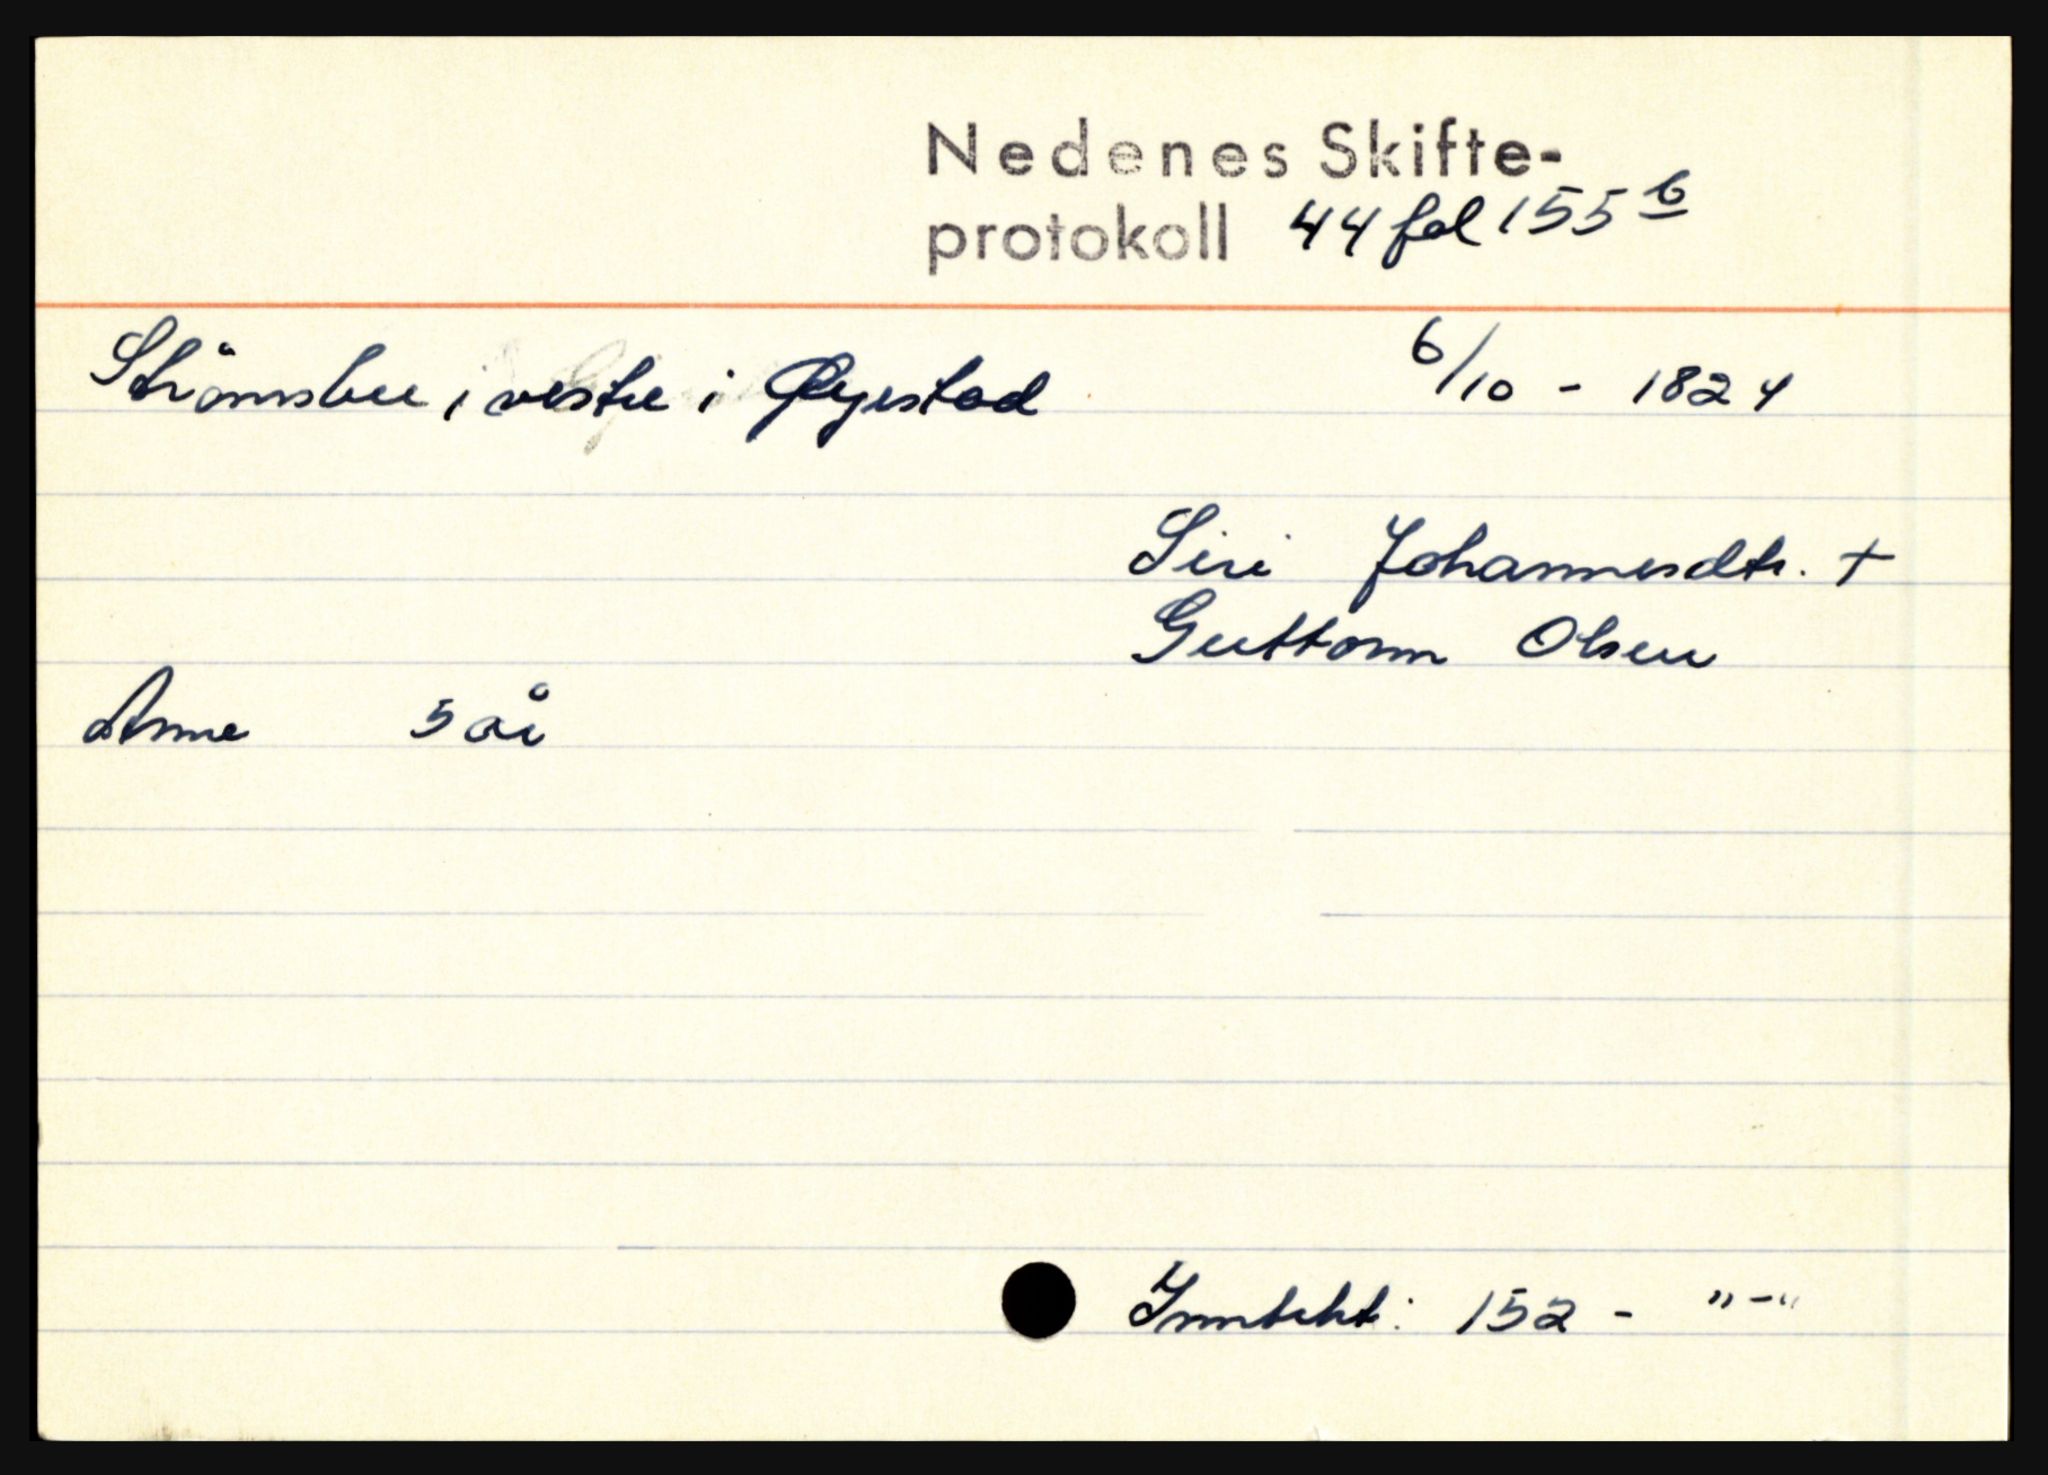 Nedenes Skifte-
protokoll 44 fol 155 b
Strömsbu, vestre i Øyestad 6/10 - 1824
Siri Johannesdtr. +
Guttorm Olsen
Anne 5 år
Inntekt: 152 - "-"